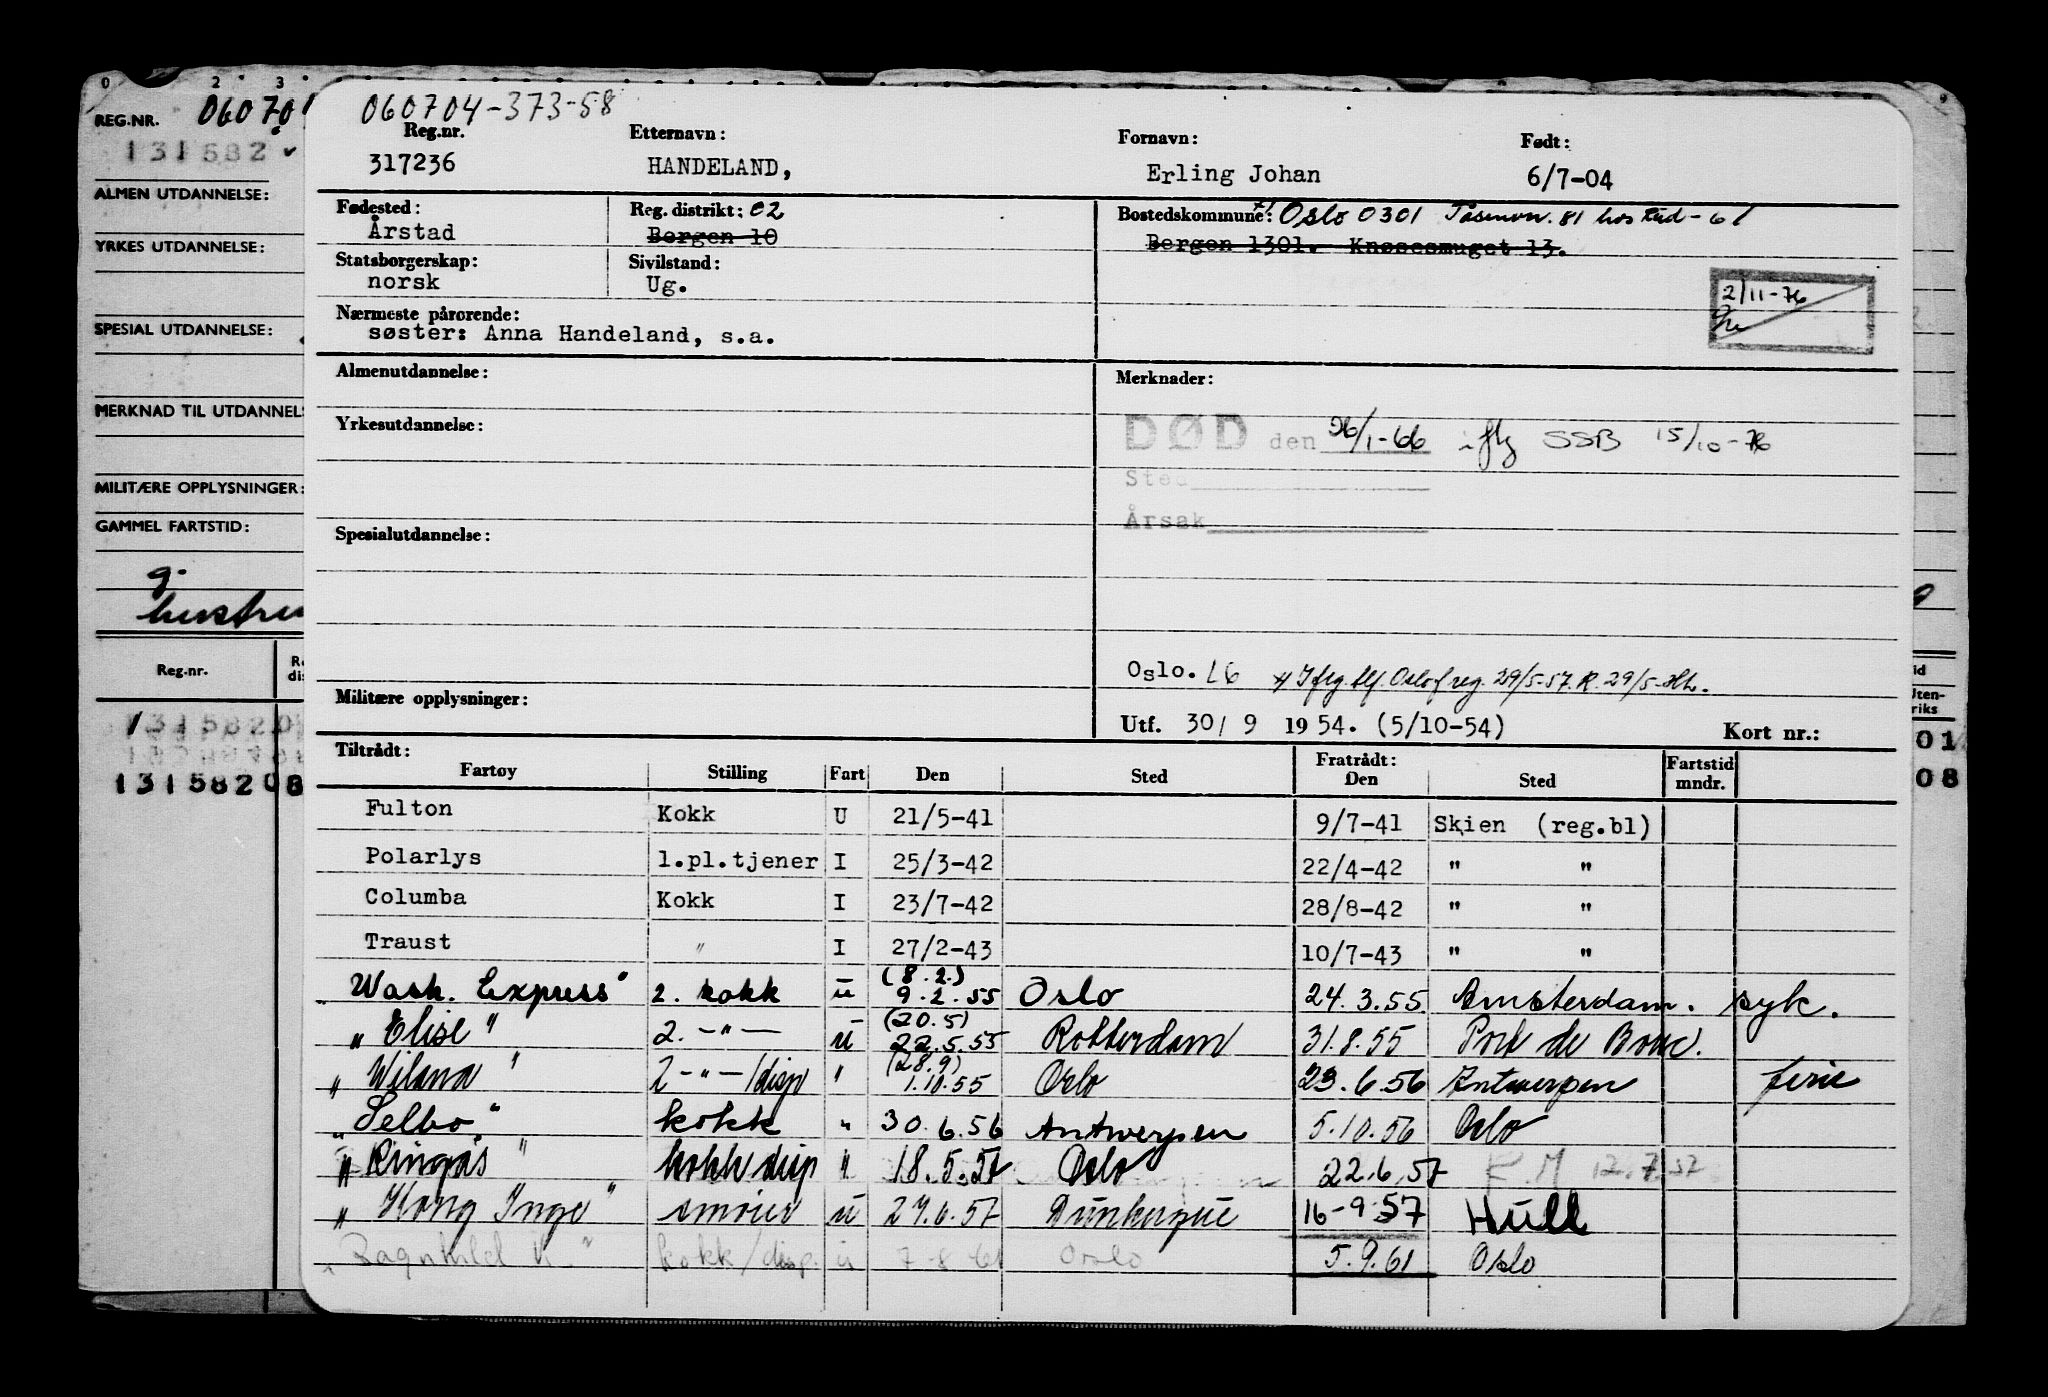 0 2 3
REG.NR. 06070
131582
ALMEN UTDANNELSE:
YRKES UTDANNELSE:
SPESIAL UTDANNELSE:
MERKNAD TIL UTDANNELS
MILITÆRE OPPLYSNINGER:
GAMMEL FARTSTID:
g.
hustru
Reg.nr.
131582 0
131582 08
060704-373-58
Reg.nr. Etternavn: Fornavn: Født:
317236 HANDELAND, Erling Johan 6/7-04
Fødested: Reg. distrikt: 02 Bostedskommune: x) Oslo 0301 Tåsenvn. 81 hos Lid - 61
Årstad Bergen 10 Bergen 1301. Knøsesmuget 13.
Statsborgerskap: Sivilstand:
norsk Ug.
2/11-76
Nærmeste pårørende:
søster: Anna Handeland, s.a.
Almenutdannelse: Merknader:
Yrkesutdannelse: DØD den 26/1-66 iflg SSB 15/10-76
Sted
Årsak
Spesialutdannelse:
Oslo. L6 x) Iflg. tlf. Oslo f.reg. 29/5-57. R. 29/5-Hh.
Militære opplysninger:
Utf. 30/ 9 1954. (5/10-54) Kort nr.:
Tiltrådt: Fratrådt: Fartstid
Fartøy Stilling Fart Den Sted Den Sted mndr.
Fulton Kokk U 21/5-41 9/7-41 Skien (reg.bl)
Polarlys 1.pl.tjener I 25/3-42 22/4-42 " "
Columba Kokk I 23/7-42 28/8-42 " "
Traust " I 27/2-43 10/7-43 " "
(8.2.)
"Wash. Express" 2. kokk u 9.2.55 Oslo 24.3.55 Amsterdam. syk.
(20.5)
"Elise" 2. -"- u 22.5.55 Rotterdam 31.8.55 Port de Bouc.
(28.9)
"Wilana" 2 -"-/disp " 1.10.55 Oslo 23.6.56 Antwerpen ferie
"Selbo" kokk " 30.6.56 Antwerpen 5.10.56 Oslo
"Ringås" kokk disp " 18.5.57 Oslo 22.6.57 R.M 12.7.57
"Kong Inge" smører u 27.6.57 Dunkerque 16-9-57 Hull
"Ragnhild K." kokk/disp. u 7-8-61 Oslo 5.9.61 Oslo
Uten-
riks
01
08